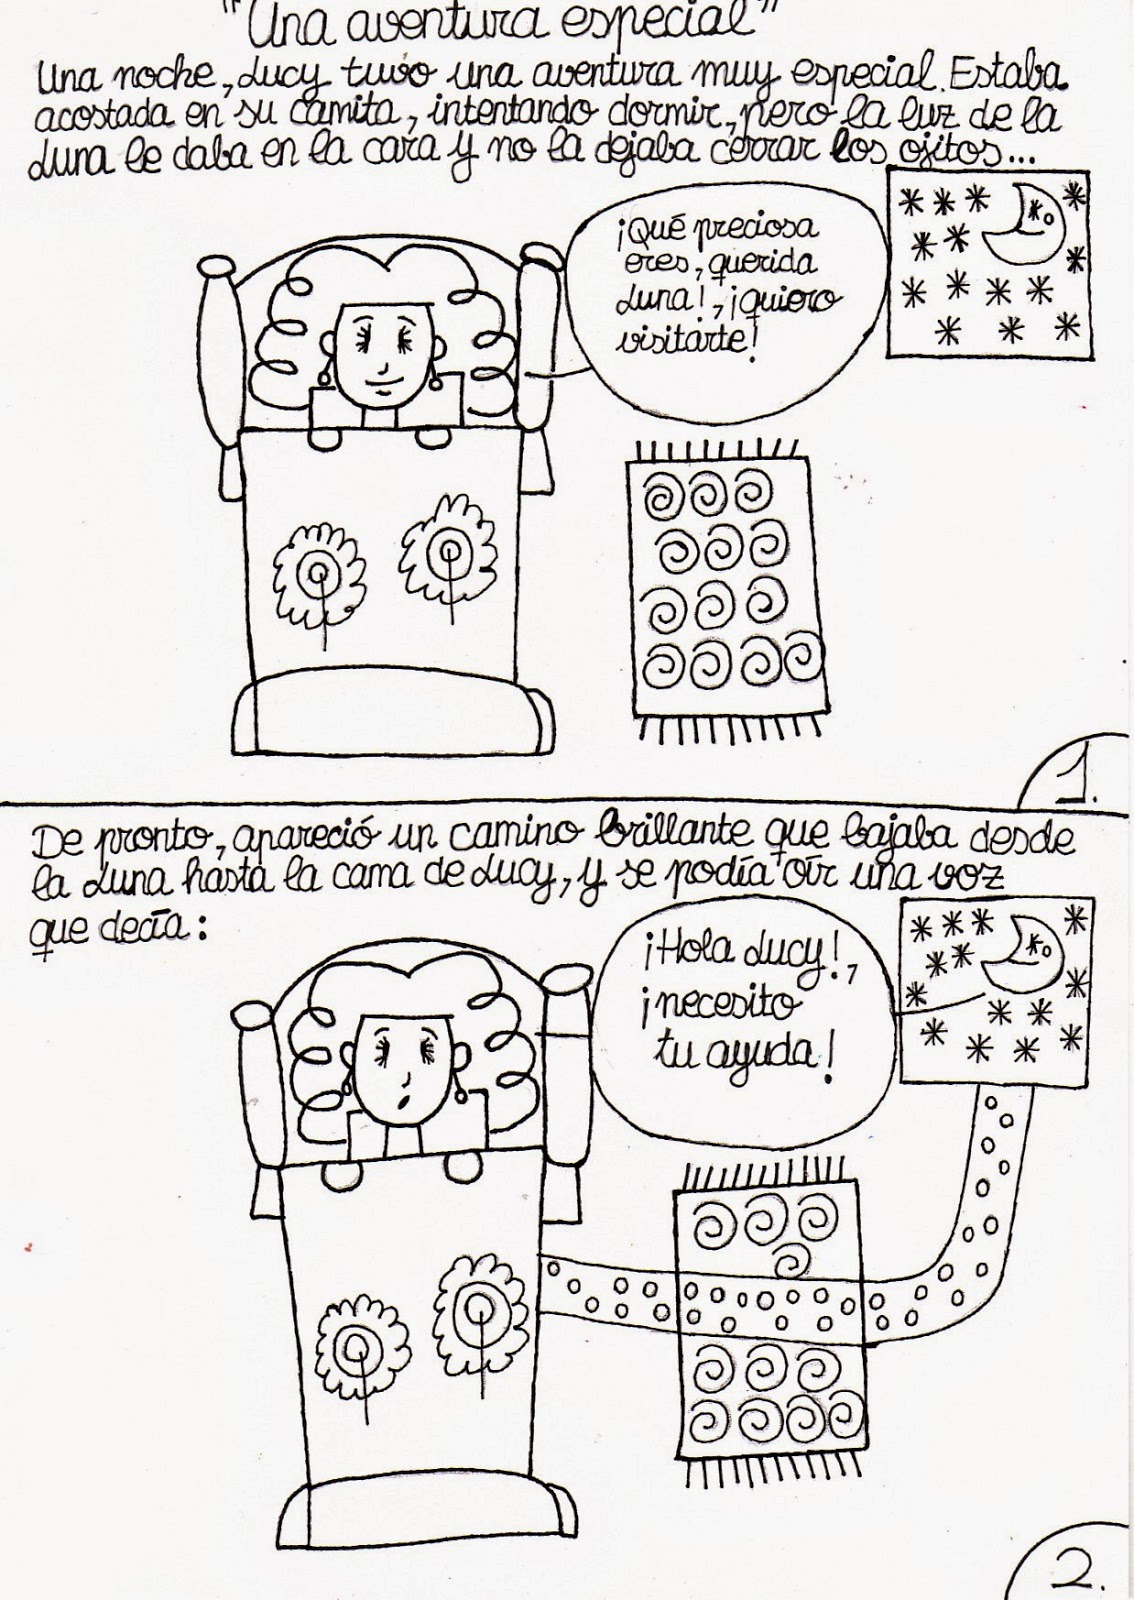 "Una aventura especial"
Una noche, Lucy tuvo una aventura muy especial. Estaba
acostada en su camita, intentando dormir, pero la luz de la
Luna le daba en la cara y no la dejaba cerrar los ojitos...
¡Qué preciosa
eres, querida
Luna!, ¡quiero
visitarte!
1.
De pronto, apareció un camino brillante que bajaba desde
la Luna hasta la cama de Lucy, y se podía oír una voz
que decía:
¡Hola Lucy!,
¡necesito
tu ayuda!
2.